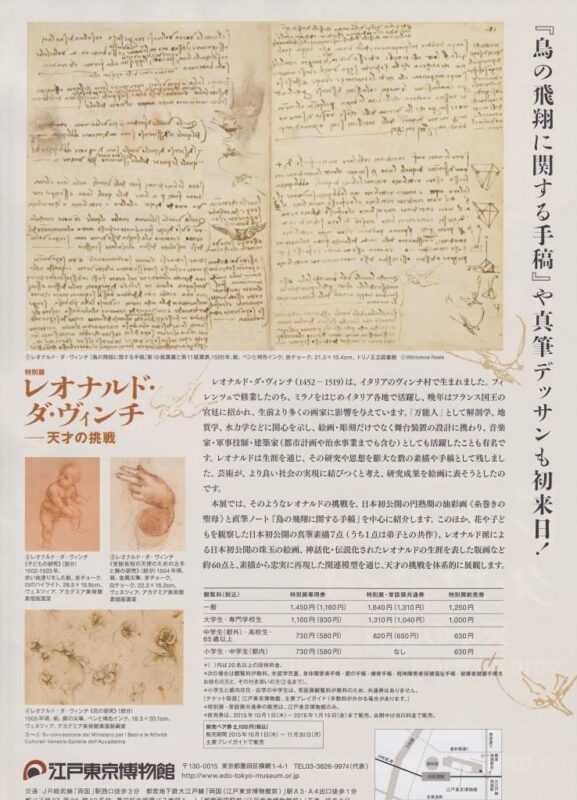 『鳥の飛翔に関する手稿』や真筆デッサンも初来日!
①レオナルド・ダ・ヴィンチ『鳥の飛翔に関する手稿』第10紙葉裏と第11紙葉表、1505年、紙、ペンと褐色インク、赤チョーク、21.3×15.4cm、トリノ王立図書館 ©Biblioteca Reale
特別展
レオナルド・
ダ・ヴィンチ
─天才の挑戦
レオナルド・ダ・ヴィンチ(1452-1519)は、イタリアのヴィンチ村で生まれました。フィ
レンツェで修業したのち、ミラノをはじめイタリア各地で活躍し、晩年はフランス国王の
宮廷に招かれ、生前より多くの画家に影響を与えています。「万能人」として解剖学、地
質学、水力学などに関心を示し、絵画・彫刻だけでなく舞台装置の設計に携わり、音楽
家・軍事技師・建築家(都市計画や治水事業までも含む)としても活躍したことも有名で
す。レオナルドは生涯を通じ、その研究や思想を膨大な数の素描や手稿として残しまし
た。芸術が、より良い社会の実現に結びつくと考え、研究成果を絵画に表そうとしたの
です。
本展では、そのようなレオナルドの挑戦を、日本初公開の円熟期の油彩画《糸巻きの
聖母》と直筆ノート『鳥の飛翔に関する手稿』を中心に紹介します。このほか、花や子ど
もを観察した日本初公開の真筆素描7点(うち1点は弟子との共作)、レオナルド派によ
る日本初公開の珠玉の絵画、神話化・伝説化されたレオナルドの生涯を表した版画など
約60点と、素描から忠実に再現した関連模型を通じ、天才の挑戦を体系的に展観します。
②レオナルド・ダ・ヴィンチ
《子どもの研究》(部分)
1502-1503年、
赤い地塗りをした紙、赤チョーク、
白のハイライト、28.5×19.8cm、
ヴェネツィア、アカデミア美術館
素描版画室
③レオナルド・ダ・ヴィンチ
紙、金属尖筆、赤チョーク、
白チョーク、22.3×16.2cm、
ヴェネツィア、アカデミア美術館
素描版画室
④レオナルド・ダ・ヴィンチ《花の研究》(部分)
1505年頃、紙、銀の尖筆、ペンと褐色インク、18.3×20.1cm、
ヴェネツィア、アカデミア美術館素描版画室
観覧料(税込) 特別展専用券 特別展・常設展共通券 特別展前売券
一般 1,450円(1,160円) 1,640円(1,310円) 1,250円
大学生・専門学校生 1,160円(930円) 1,310円(1,040円) 1,000円
中学生(都外)・高校生・
65歳以上 730円(580円) 820円(650円) 630円
小学生・中学生(都内) 730円(580円) なし 630円
*( )内は20名以上の団体料金。
*小学生と都内在住・在学の中学生は、常設展観覧料が無料のため、共通券はありません。
*特別展・常設展共通券の販売は、江戸東京博物館のみ。
*前売券は、2015年10月1日(木)〜2016年1月15日(金)まで販売。会期中は当日料金で販売。
前売ペア券 2,100円(税込)
販売期間 2015年10月1日(木)〜11月30日(月)
主要プレイガイドで販売
江戸東京博物館
〒130-0015 東京都墨田区横網1-4-1 TEL03-3626-9974(代表)
http://www.edo-tokyo-museum.or.jp
交通:JR総武線「両国」駅西口徒歩3分 都営地下鉄大江戸線「両国(江戸東京博物館前)」駅A3・A4出口徒歩1分